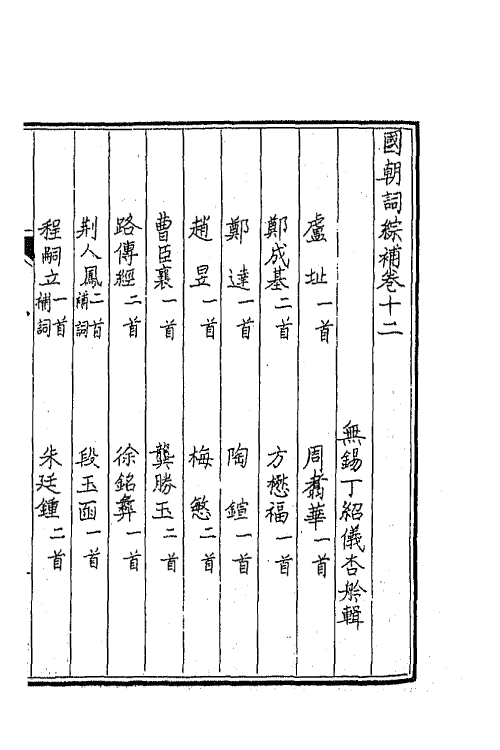 國朝詞綜補卷十二
無錫丁紹儀杏舲輯
盧址一首 周翥華一首
鄭成基二首 方懋福一首
鄭達一首 陶鎧一首
趙昱一首 梅慜二首
曹臣襄一首 龔勝玉二首
路傳經二首 徐銘彝一首
荆人鳳二首補詞 段玉函一首
程嗣立一首補詞 朱廷鍾二首